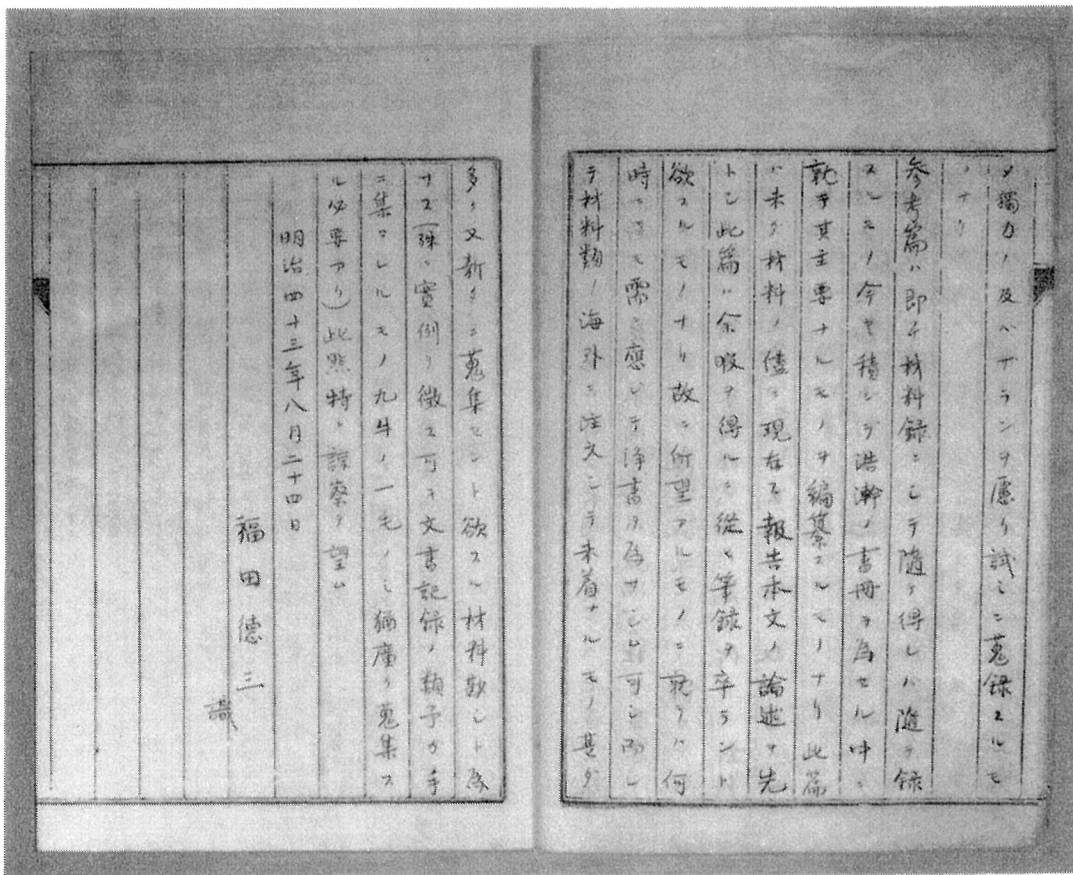 メ獨力ノ及バザランヲ慮リ試ミニ蒐録スルモ
ノナリ
参考篇ハ即チ材料録ニシテ隨テ得レバ隨テ録
スルモノ今ヤ積ンデ浩瀚ノ書冊ヲ為セル中ニ
就キ其主要ナルモノヲ編纂スルモノナリ此篇
ハ未ダ材料ノ儘ニ現在シ報告本文ノ論述ヲ先
トシ此篇ハ余暇ヲ得ルニ從ヒ筆録ヲ卒ラント
欲スルモノナリ故ニ所望アルモノニ就テハ何
時ニテモ需ニ應ジテ淨書ヲ為サシム可シ而シ
テ材料類ノ海外ニ注文シテ未着ナルモノ甚ダ
多ク又新タニ蒐集セント欲スル材料尠シト為
サズ(殊ニ實例ヲ徴ス可キ文書記録ノ類予ガ手
ニ集マレルモノ九牛ノ一毛ノミ猶廣ク蒐集ス
ル必要アリ)此點特ニ諒察ヲ望ム
明治四十三年八月二十四日
福田徳三
識